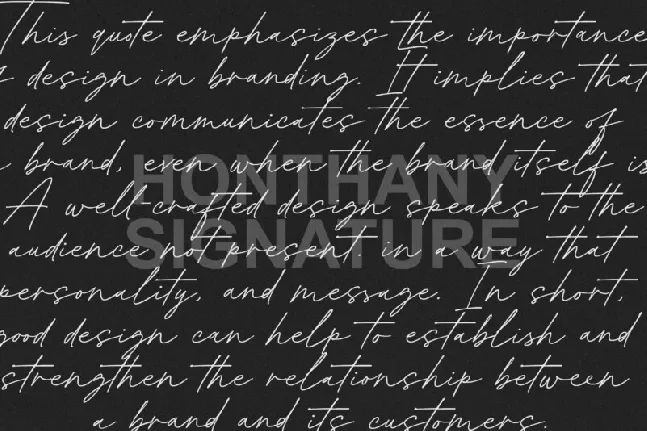 This quote emphasizes the importance
f design in branding. It implies that
design communicates the essence of
brand, even when the brand itself is
HONTHANY
A well-crafted design speaks to the
SIGNATURE
audience not present in a way that
personality, and message. In short,
good design can help to establish and
strengthen the relationship between
a brand and its customers.